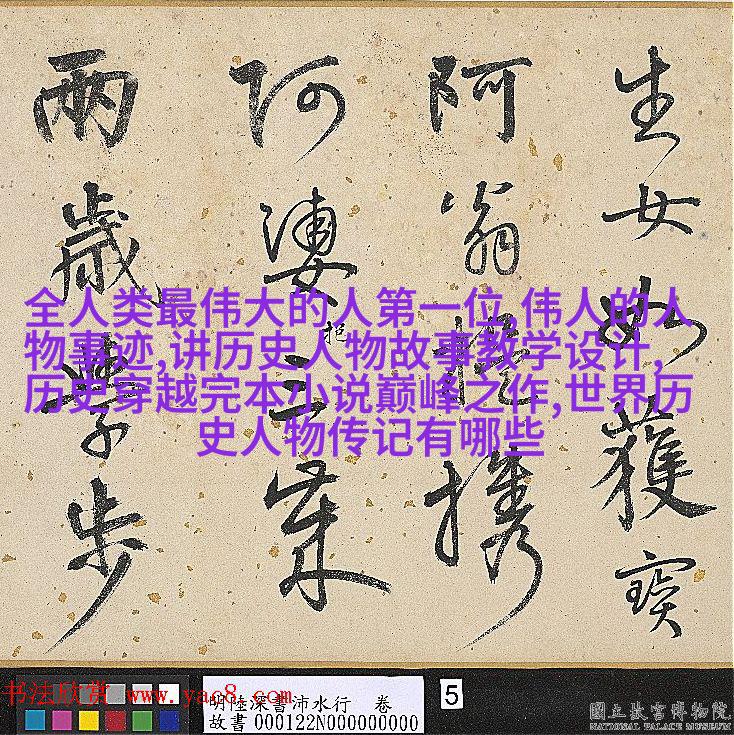 生女如獲寶
阿翁提携
阿婆抱
兩歲學步
全人类最伟大的人第一位,伟人的人
物事迹,讲历史人物故事教学设计,
历史穿越完本小说巅峰之作,世界历
史人物传记有哪些
书法欣赏 www.yac8.com
明陸深書沛水行 卷
故書 000122N000000000
5
國立故宮博物院
NATIONAL PALACE MUSEUM